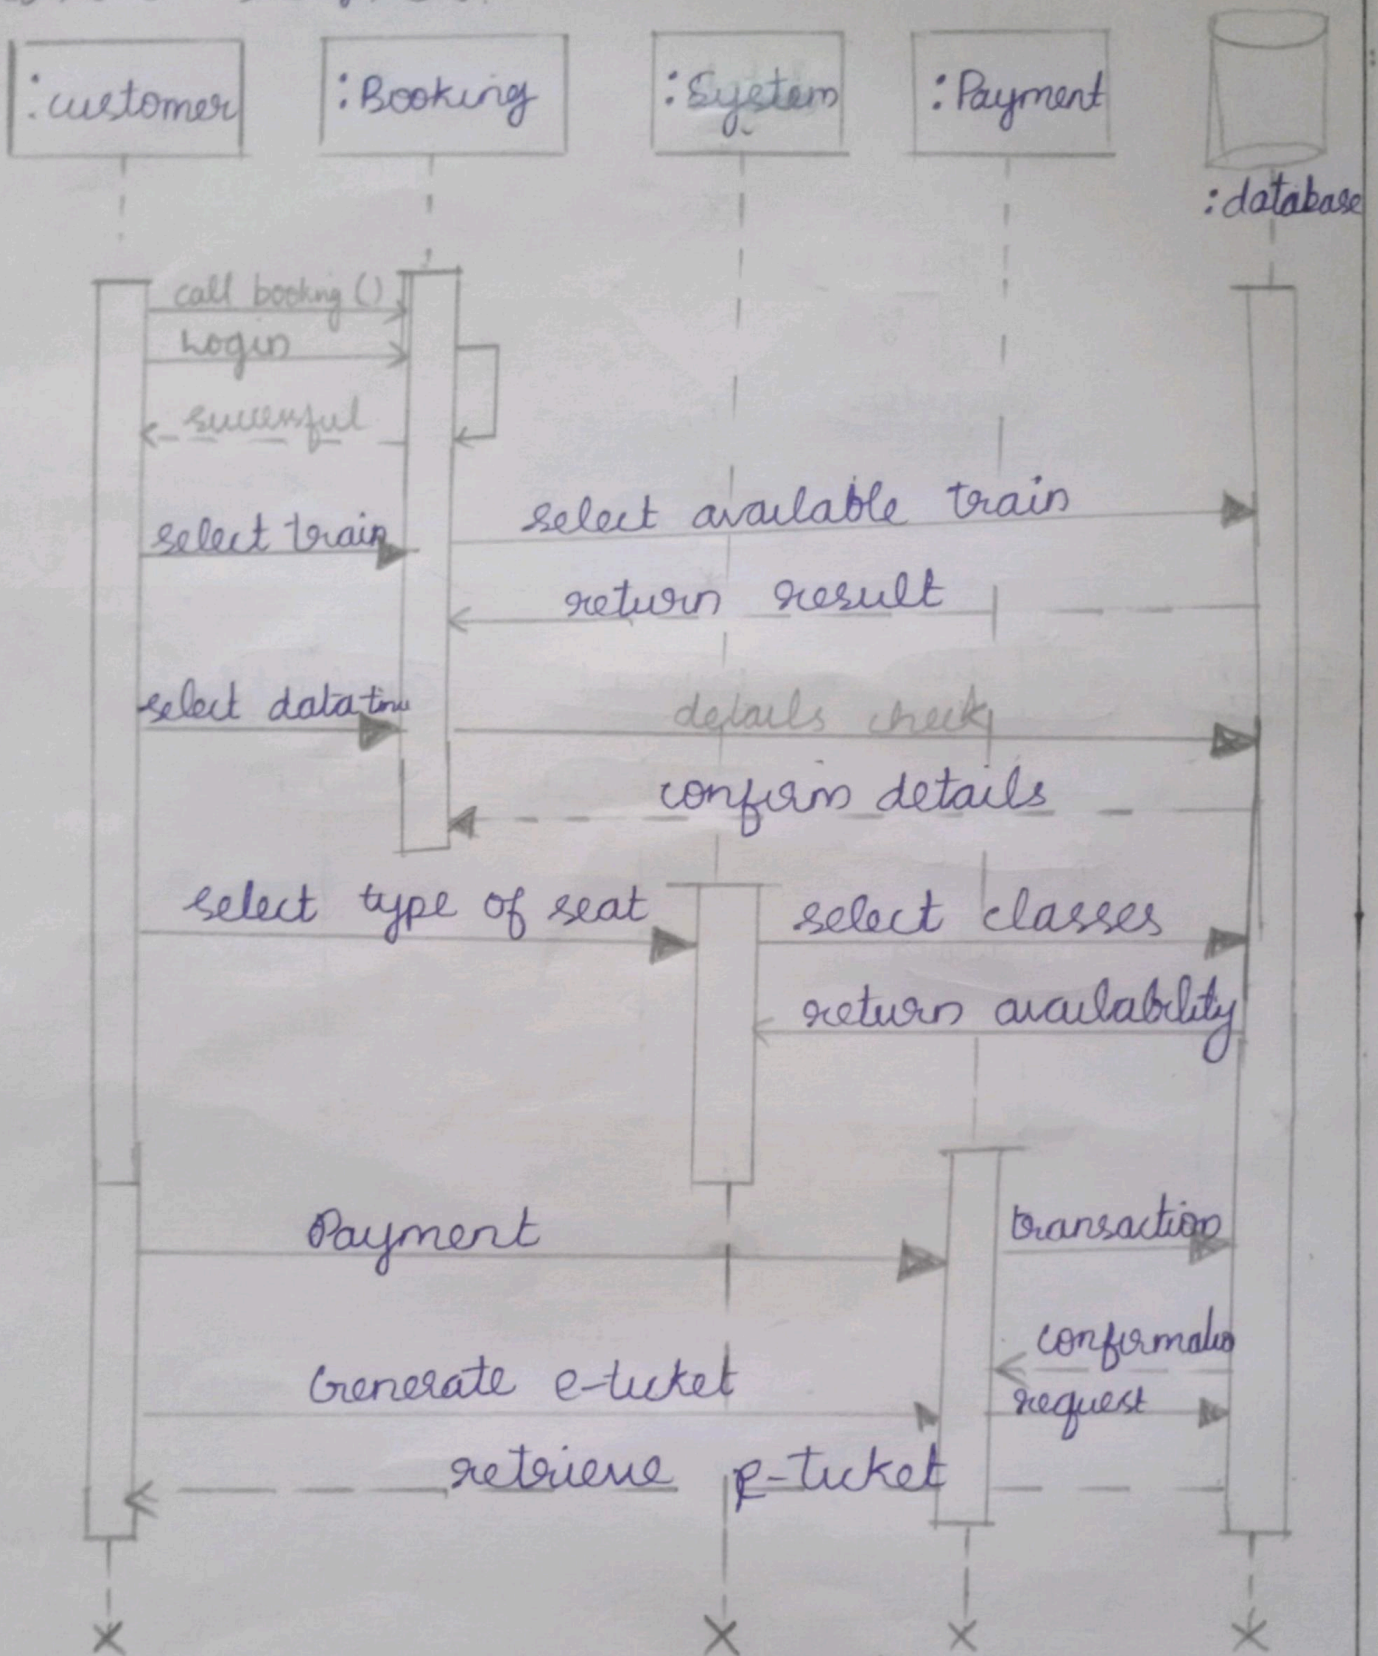 :customer
:Booking
:System
:Payment
:database
call booking ()
Login
successful
select train
select available train
return result
select data time
details check
confirm details
select type of seat
select classes
return availability
Payment
transaction
confirmatio
Generate e-ticket
request
retrieve e-ticket